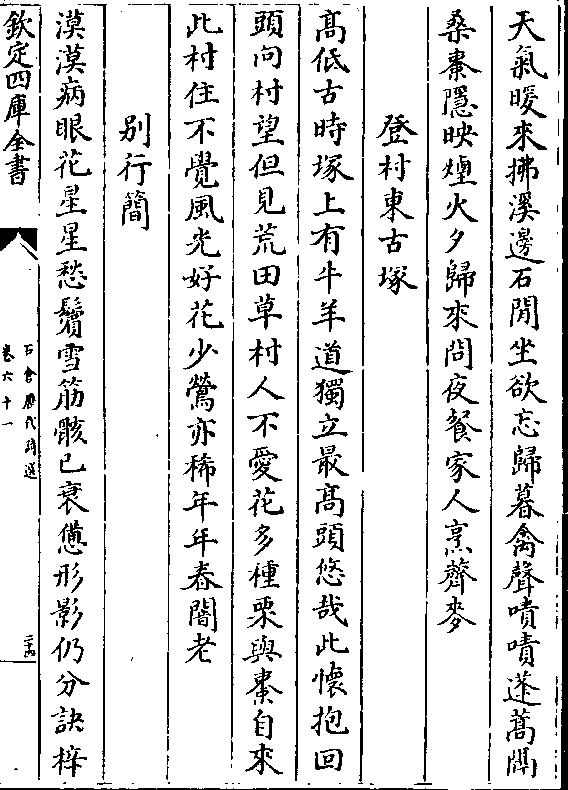 天氣暖來拂溪邊石閒坐欲忘歸暮禽聲嘖嘖蓬蒿闗
桑棗隱映煙火夕歸來問夜餐家人烹薺麥
登村東古塚
髙低古時塚上有牛羊道獨立最髙頭悠哉此懷抱回
頭向村望但見荒田草村人不愛花多種栗與棗自來
此村住不覺風光好花少鶯亦稀年年春闇老
别行簡
漠漠病眼花星星愁鬢雪筋骸已衰憊形影仍分訣梓
欽定四庫全書
石倉歷代詩選
卷六十一
二十四